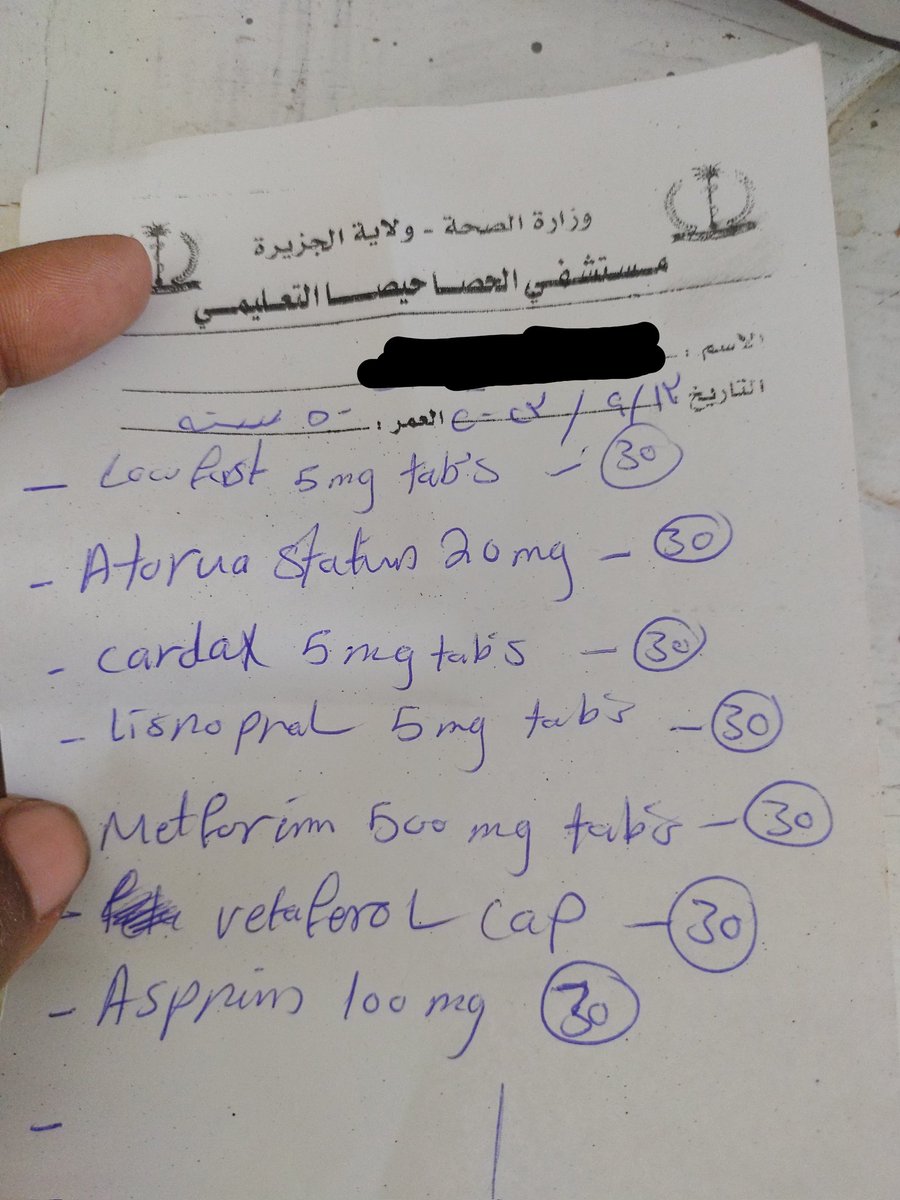 وزارة الصحة - ولاية الجزيرة
مستشفي الحصاحيصا التعليمي
الاسم :
التاريخ ١٢/٩/ ٢٠٢٣ العمر : ٥٠ سنه
- Lowfast 5mg tab's - 30
- Atorua Status 20mg - 30
- cardax 5mg tab's - 30
- lisnopral 5mg tab's - 30
Metforim 500 mg tab's - 30
- vetaferol cap - 30
- Asprim 100 mg 30
-